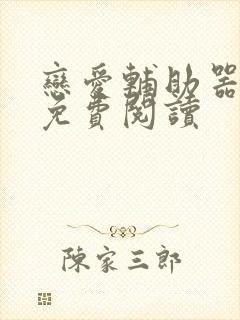 戀愛輔助器
免費閱讀
陳家三郎